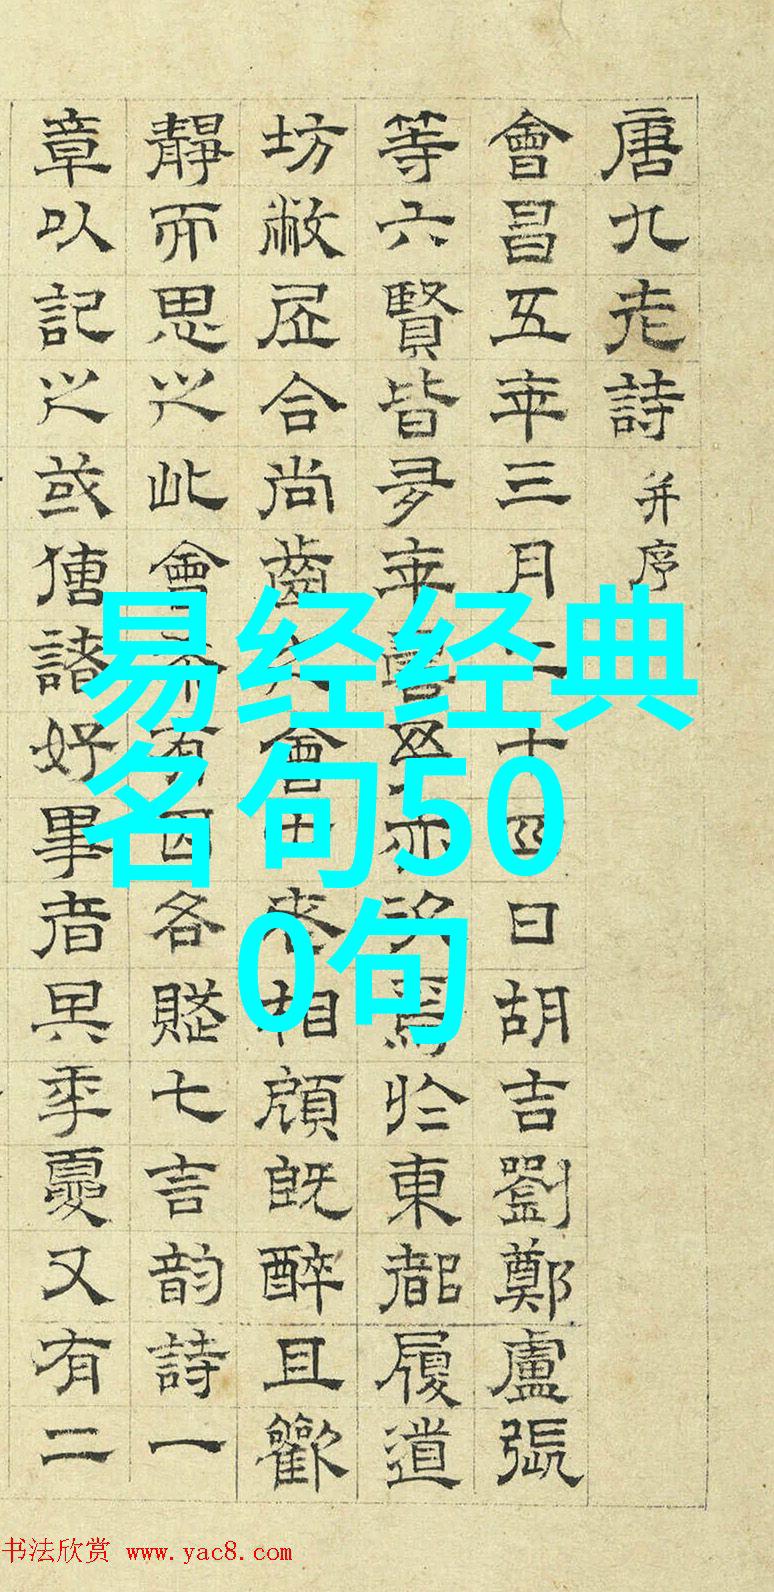 唐九老詩 并序
會昌五年三月二十四日胡吉劉鄭盧張
等六賢皆多年壽予亦次焉於東都履道
坊敝居合尚齒之會七老相顧既醉且歡
靜而思之此會希有因各賦七言韵詩一
章以記之或傳諸好事者其年夏又有二
易经经典
名句50
0句
书法欣赏 www.yac8.com